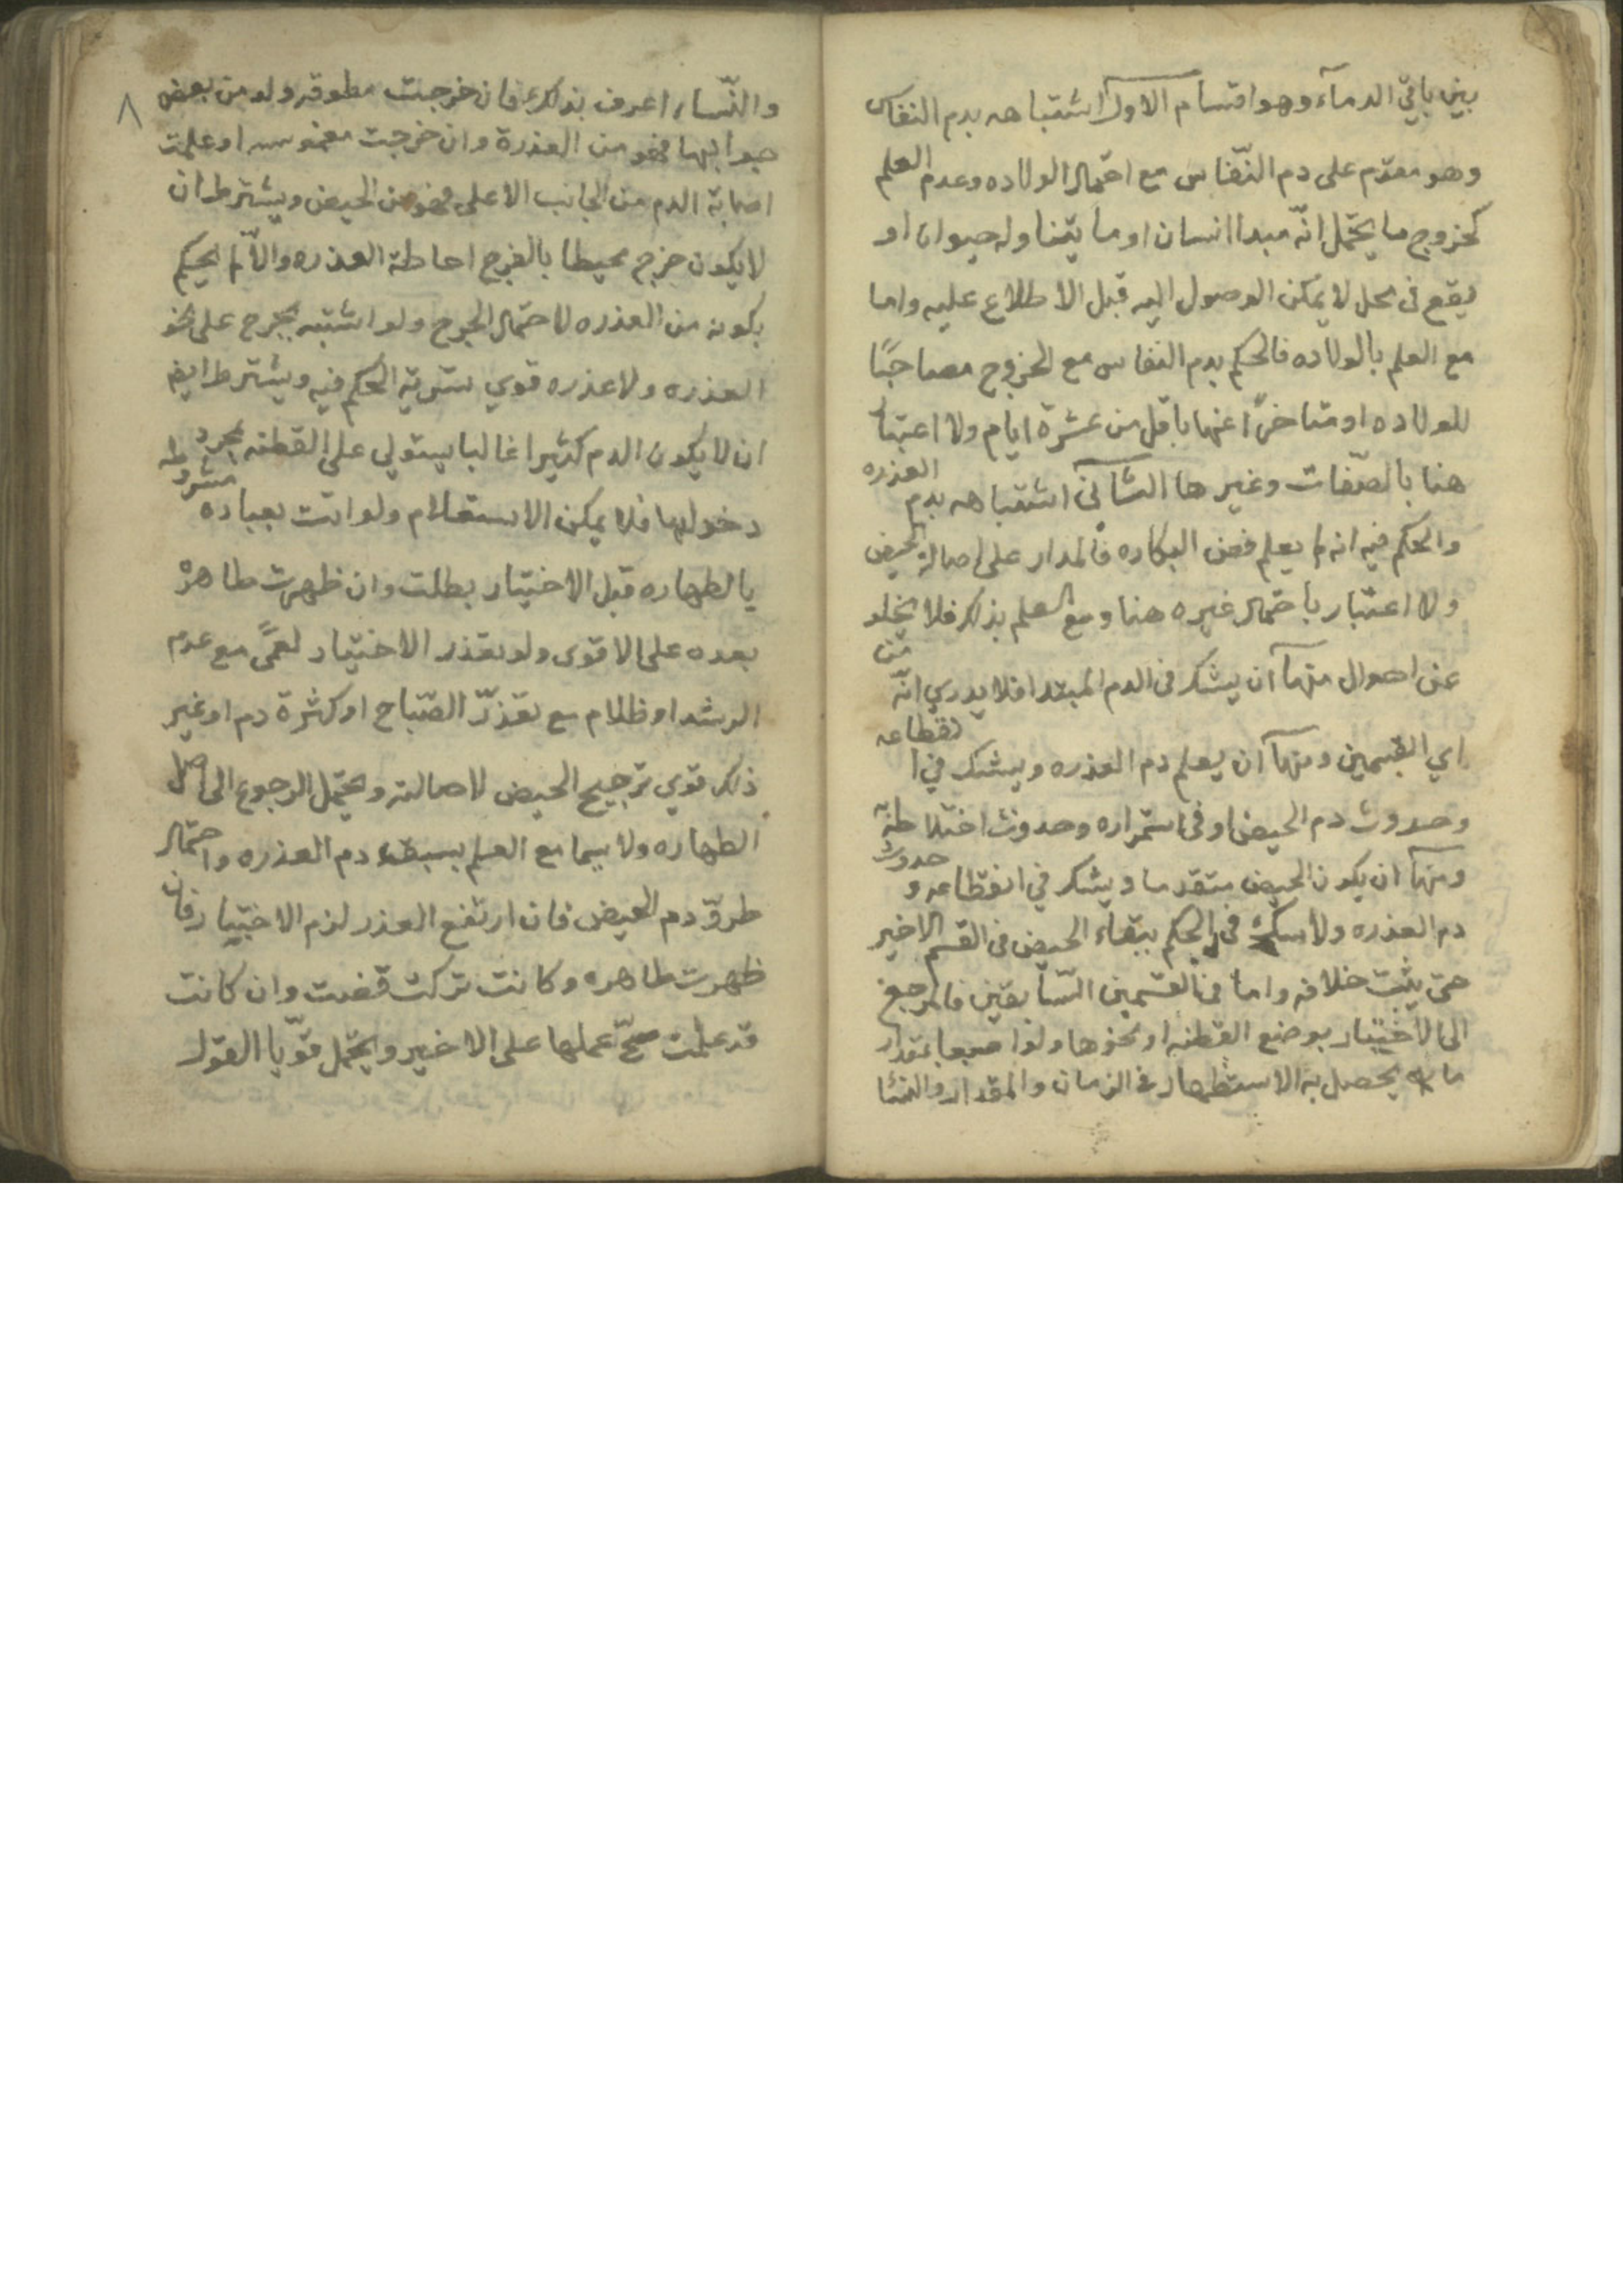 بين باقي الدمآء وهو اقسام الاول اشتباهه بدم النفاس
وهو مقدّم على دم النّفاس مع احتمال الولاده وعدم العلم
كخروج ما يحتمل انّه مبدا انسان او ما يتناوله حيوان او
يقع في محل لا يمكن الوصول اليه قبل الاطلاع عليه واما
مع العلم بالولاده فالحكم بدم النفاس مع الخروج مصاحبًا
للولاده او متاخرًا عنها باقل من عشرة ايام ولا اعتبار
هنا بالصّفات وغيرها الثاني اشتباهه بدم العذره
والحكم فيه انه لم يعلم فض البكاره فالمدار على اصالة الحيض
ولا اعتبار باحتمال غيره هنا ومع العلم بذلك فلا يخلو
عن احوال منهآ ان يشك في الدم المبتدا فلا يدري انّه من
اي القسمين ومنهآ ان يعلم دم العذره ويشك في انقطاعه
وحدوث دم الحيض او في استمراره وحدوث اختلاطه
ومنهآ ان يكون الحيض متقدما ويشك في انقطاعه وحدوث
دم العذره ولا شك في الحكم ببقاء الحيض في القسم الاخير
حتى يثبت خلافه واما في القسمين السّابقين فالمرجع
الى الاختبار بوضع القطنه او نحوها ولفا بمقدار
ما يحصل به الاستظهار في الزمان والمقدار والنسّا
والنّساء اعرف بذلك فان خرجت مطوقه ولو من بعض
جوانبها فهو من العذرة وان خرجت مغموسه او علمت
اصابة الدم من الجانب الاعلى فهو من الحيض ويشترط ان
لا يكون جرح محيطا بالفرج احاطة العذره والّا لم يحكم
بكونه من العذره لاحتمال الجرح ولو اشتبه بجرح على نحو
العذره ولا عذره قوي تسرية الحكم فيه ويشترط ايض
ان لا يكون الدم كثيرا غالبا يستولي على القطنه بمجرد
دخولها فلا يمكن الاستعلام ولو اتت بعباده مشروطه
بالطهاره قبل الاختبار بطلت وان ظهرت طاهرة
بعده على الاقوى ولو تعذر الاختبار لعمًى مع عدم
المرشد او ظلام مع تعذّر المصباح او كثرة دم او غير
ذلك قوي ترجيح الحيض لاصالته ويحتمل الرجوع الى اصل
الطهاره ولا سيما مع العلم بسبق دم العذره واحتمال
طروّ دم الحيض فان ارتفع العذر لزم الاختبار فان
ظهرت طاهره وكانت تركت قضت وان كانت
قد علمت صحّ عملها على الاخير ويحتمل قوّيا القول
٨